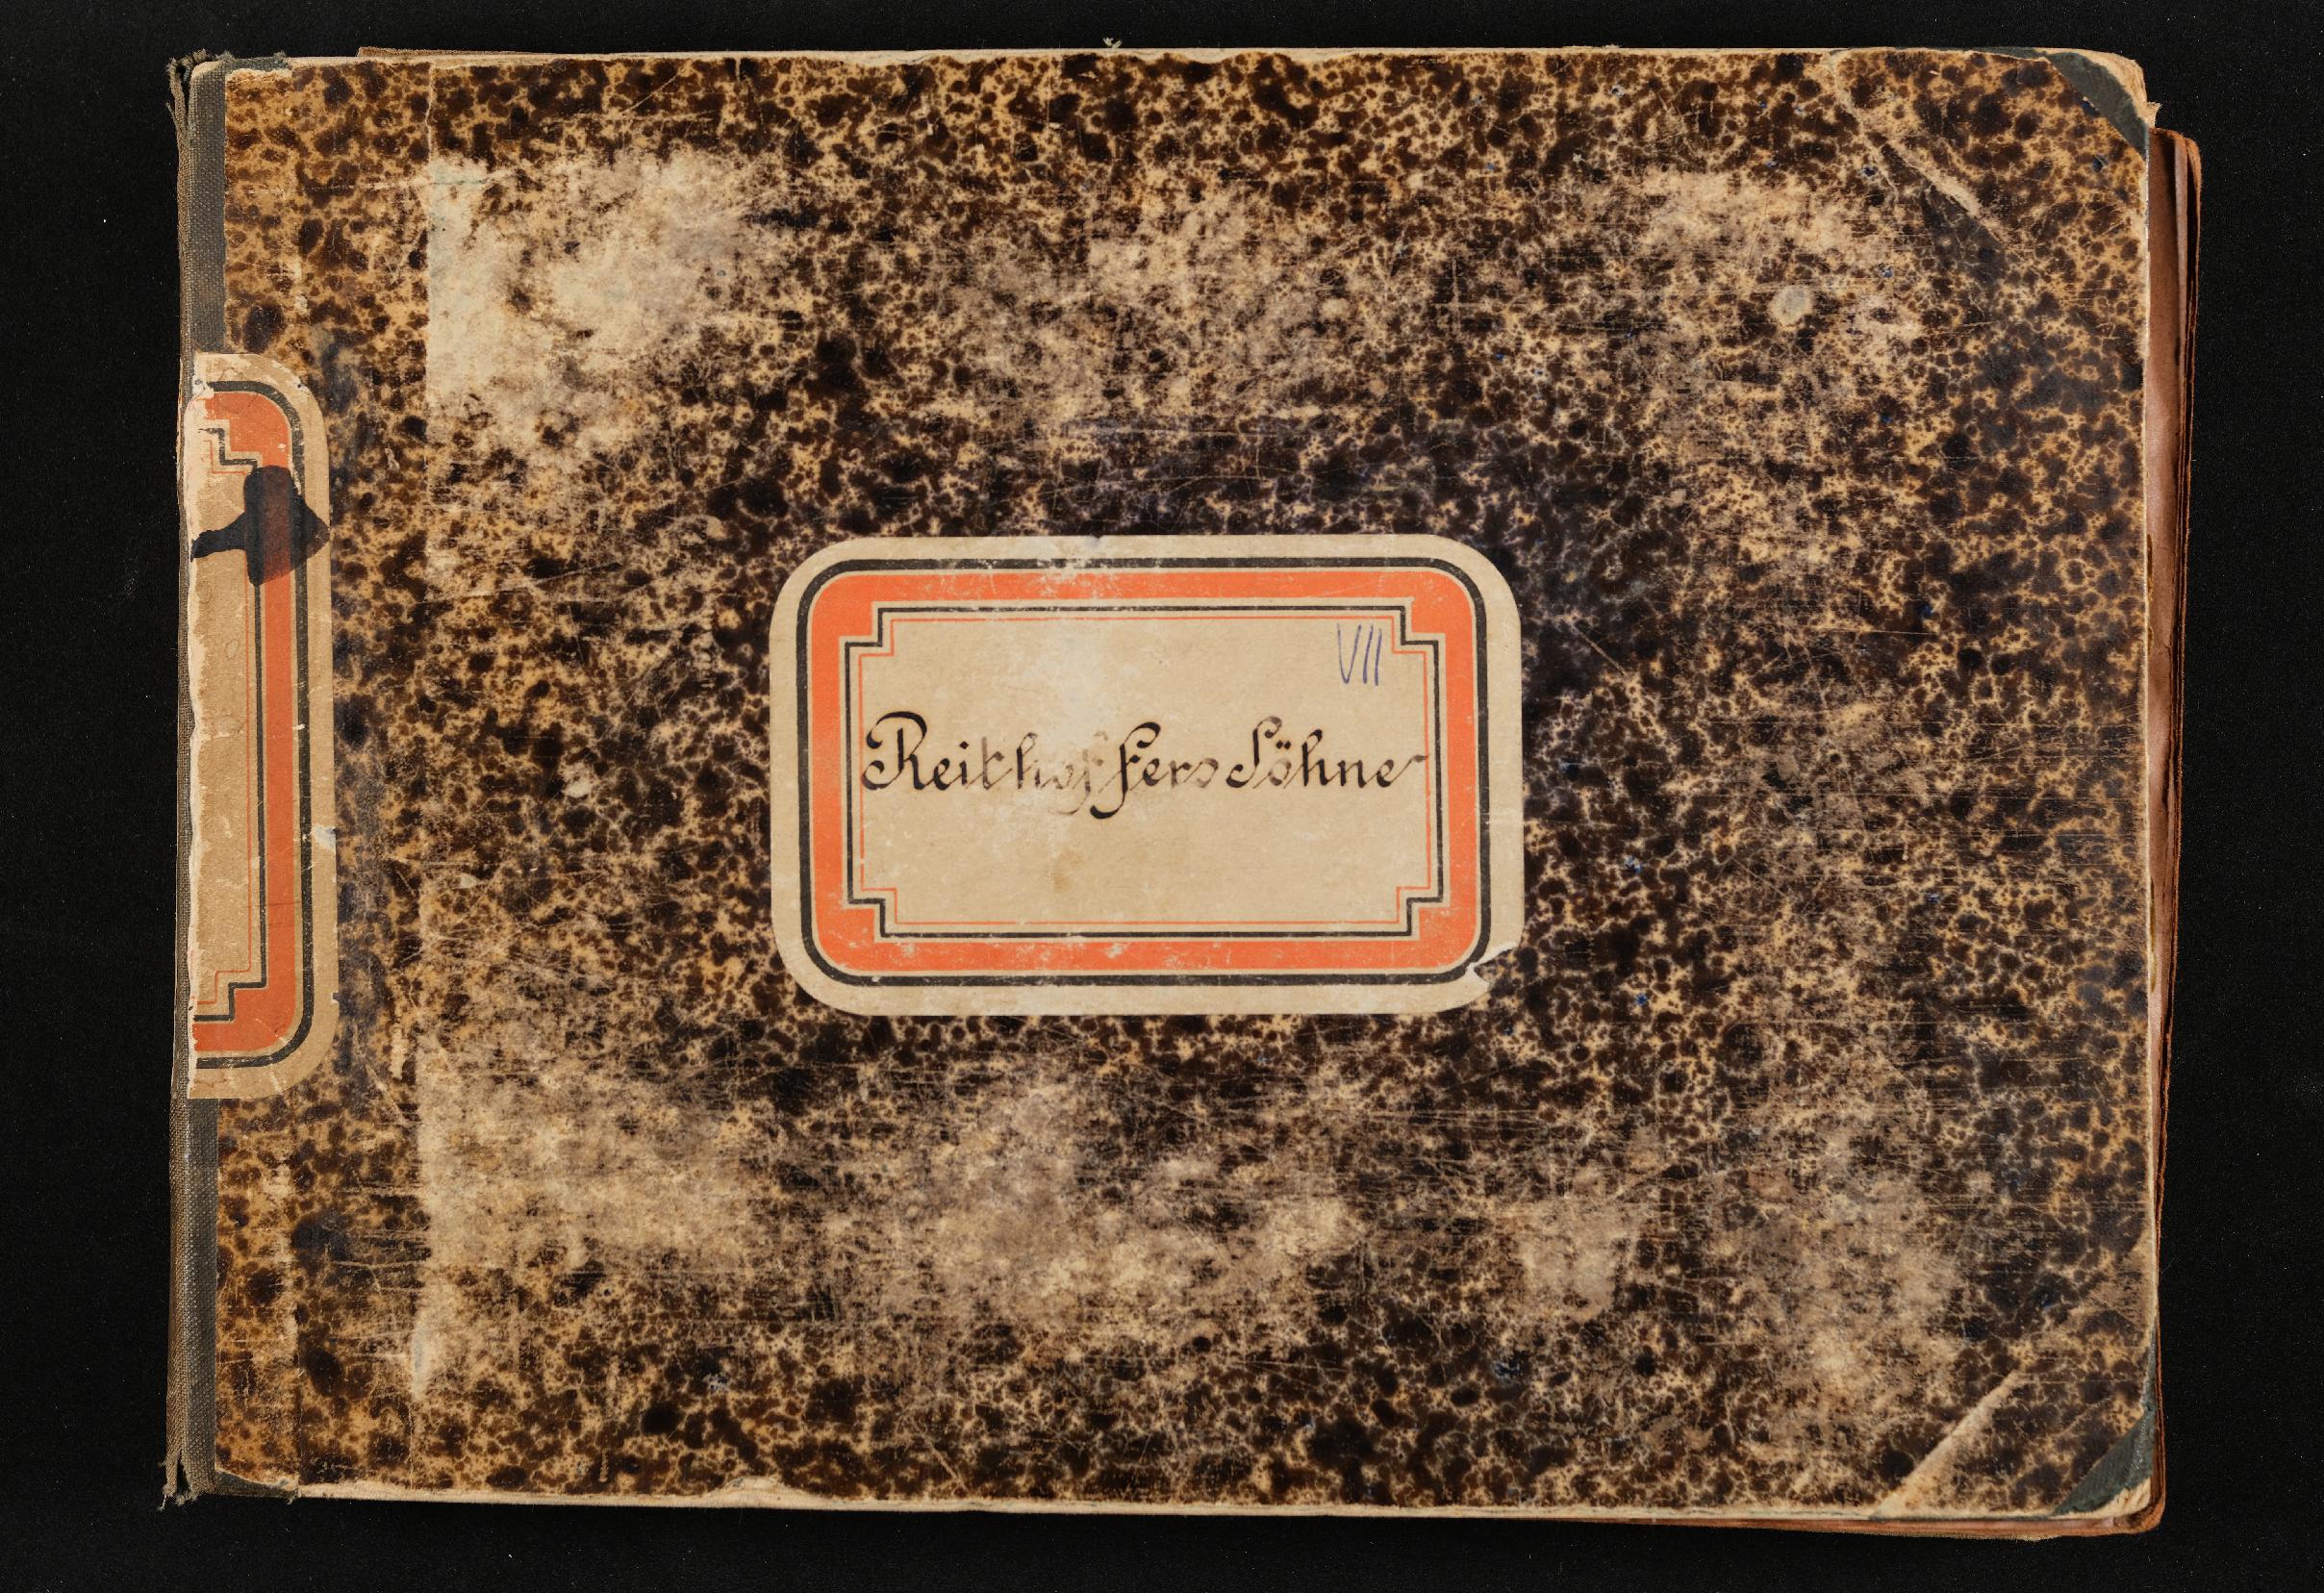 VII
Reithoffers Söhne